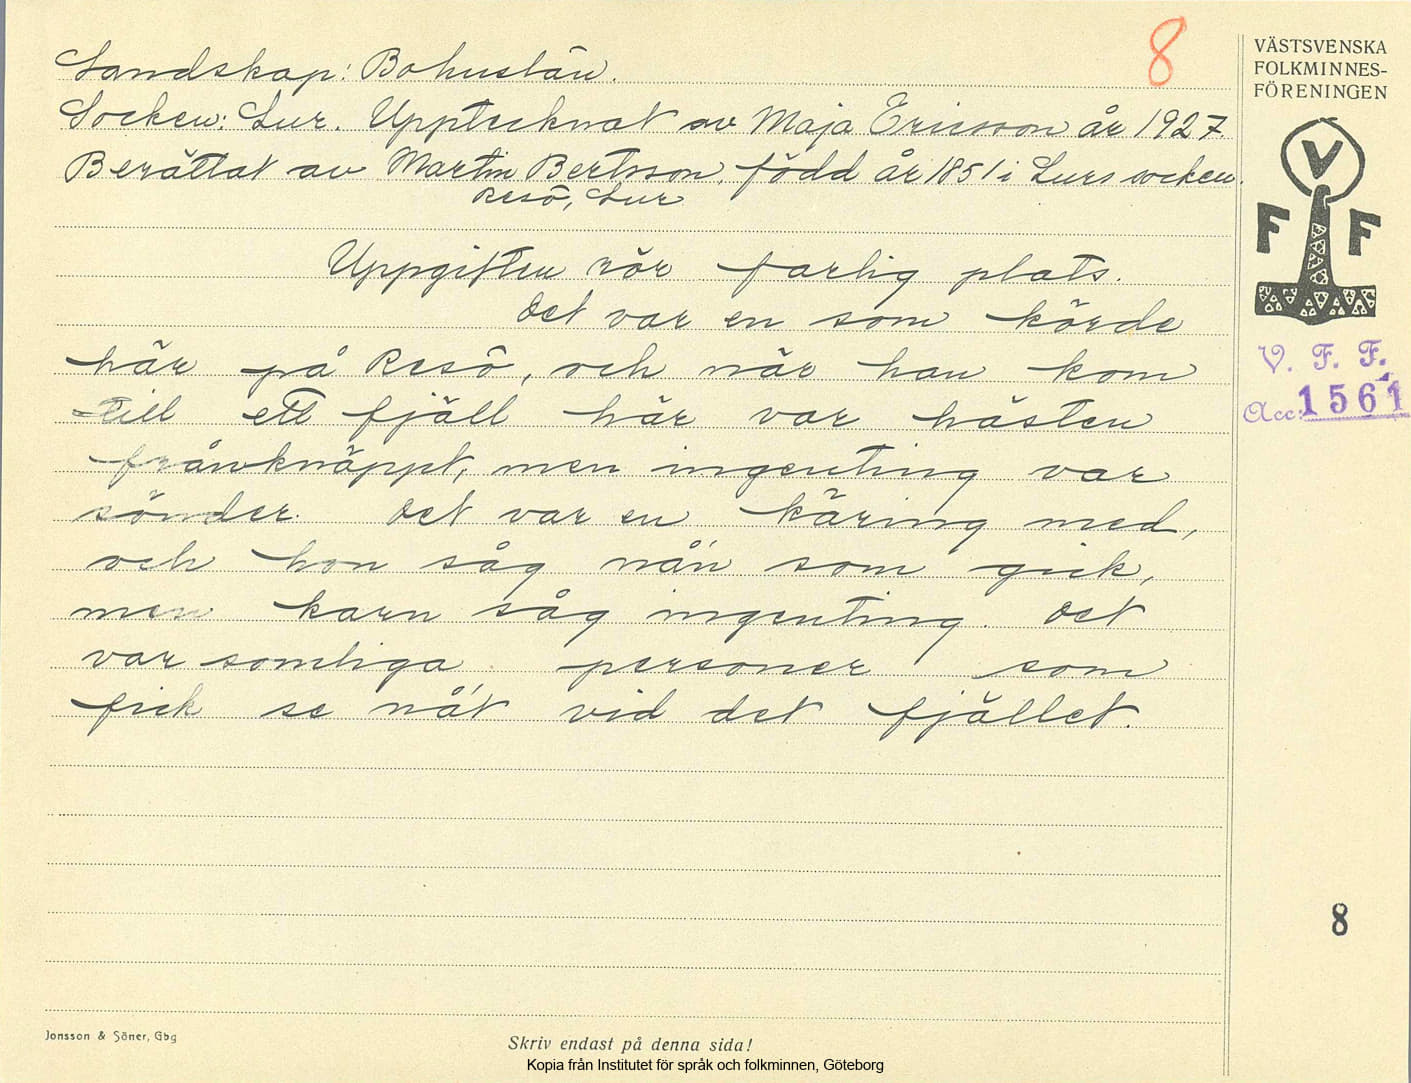 8
Landskap: Bohuslän.
Socken: Lur. Upptecknat av Maja Ericsson år 1927.
Berättat av Martin Bertsson, född år 1851 i Lurs socken.
Resö, Lur
Uppgiften rör farlig plats.
Det var en som körde
här på Resö, och när han kom
till ett fjäll här var hästen
frånknäppt, men ingenting var
sönder. Det var en käring med,
och hon såg nå'n som gick,
men karn såg ingenting. Det
var somliga personer som
fick se nå't vid det fjället.
VÄSTSVENSKA
FOLKMINNES-
FÖRENINGEN
V
F F
V. F. F.
Acc: 1561
8
Jonsson & Söner, Gbg
Skriv endast på denna sida!
Kopia från Institutet för språk och folkminnen, Göteborg